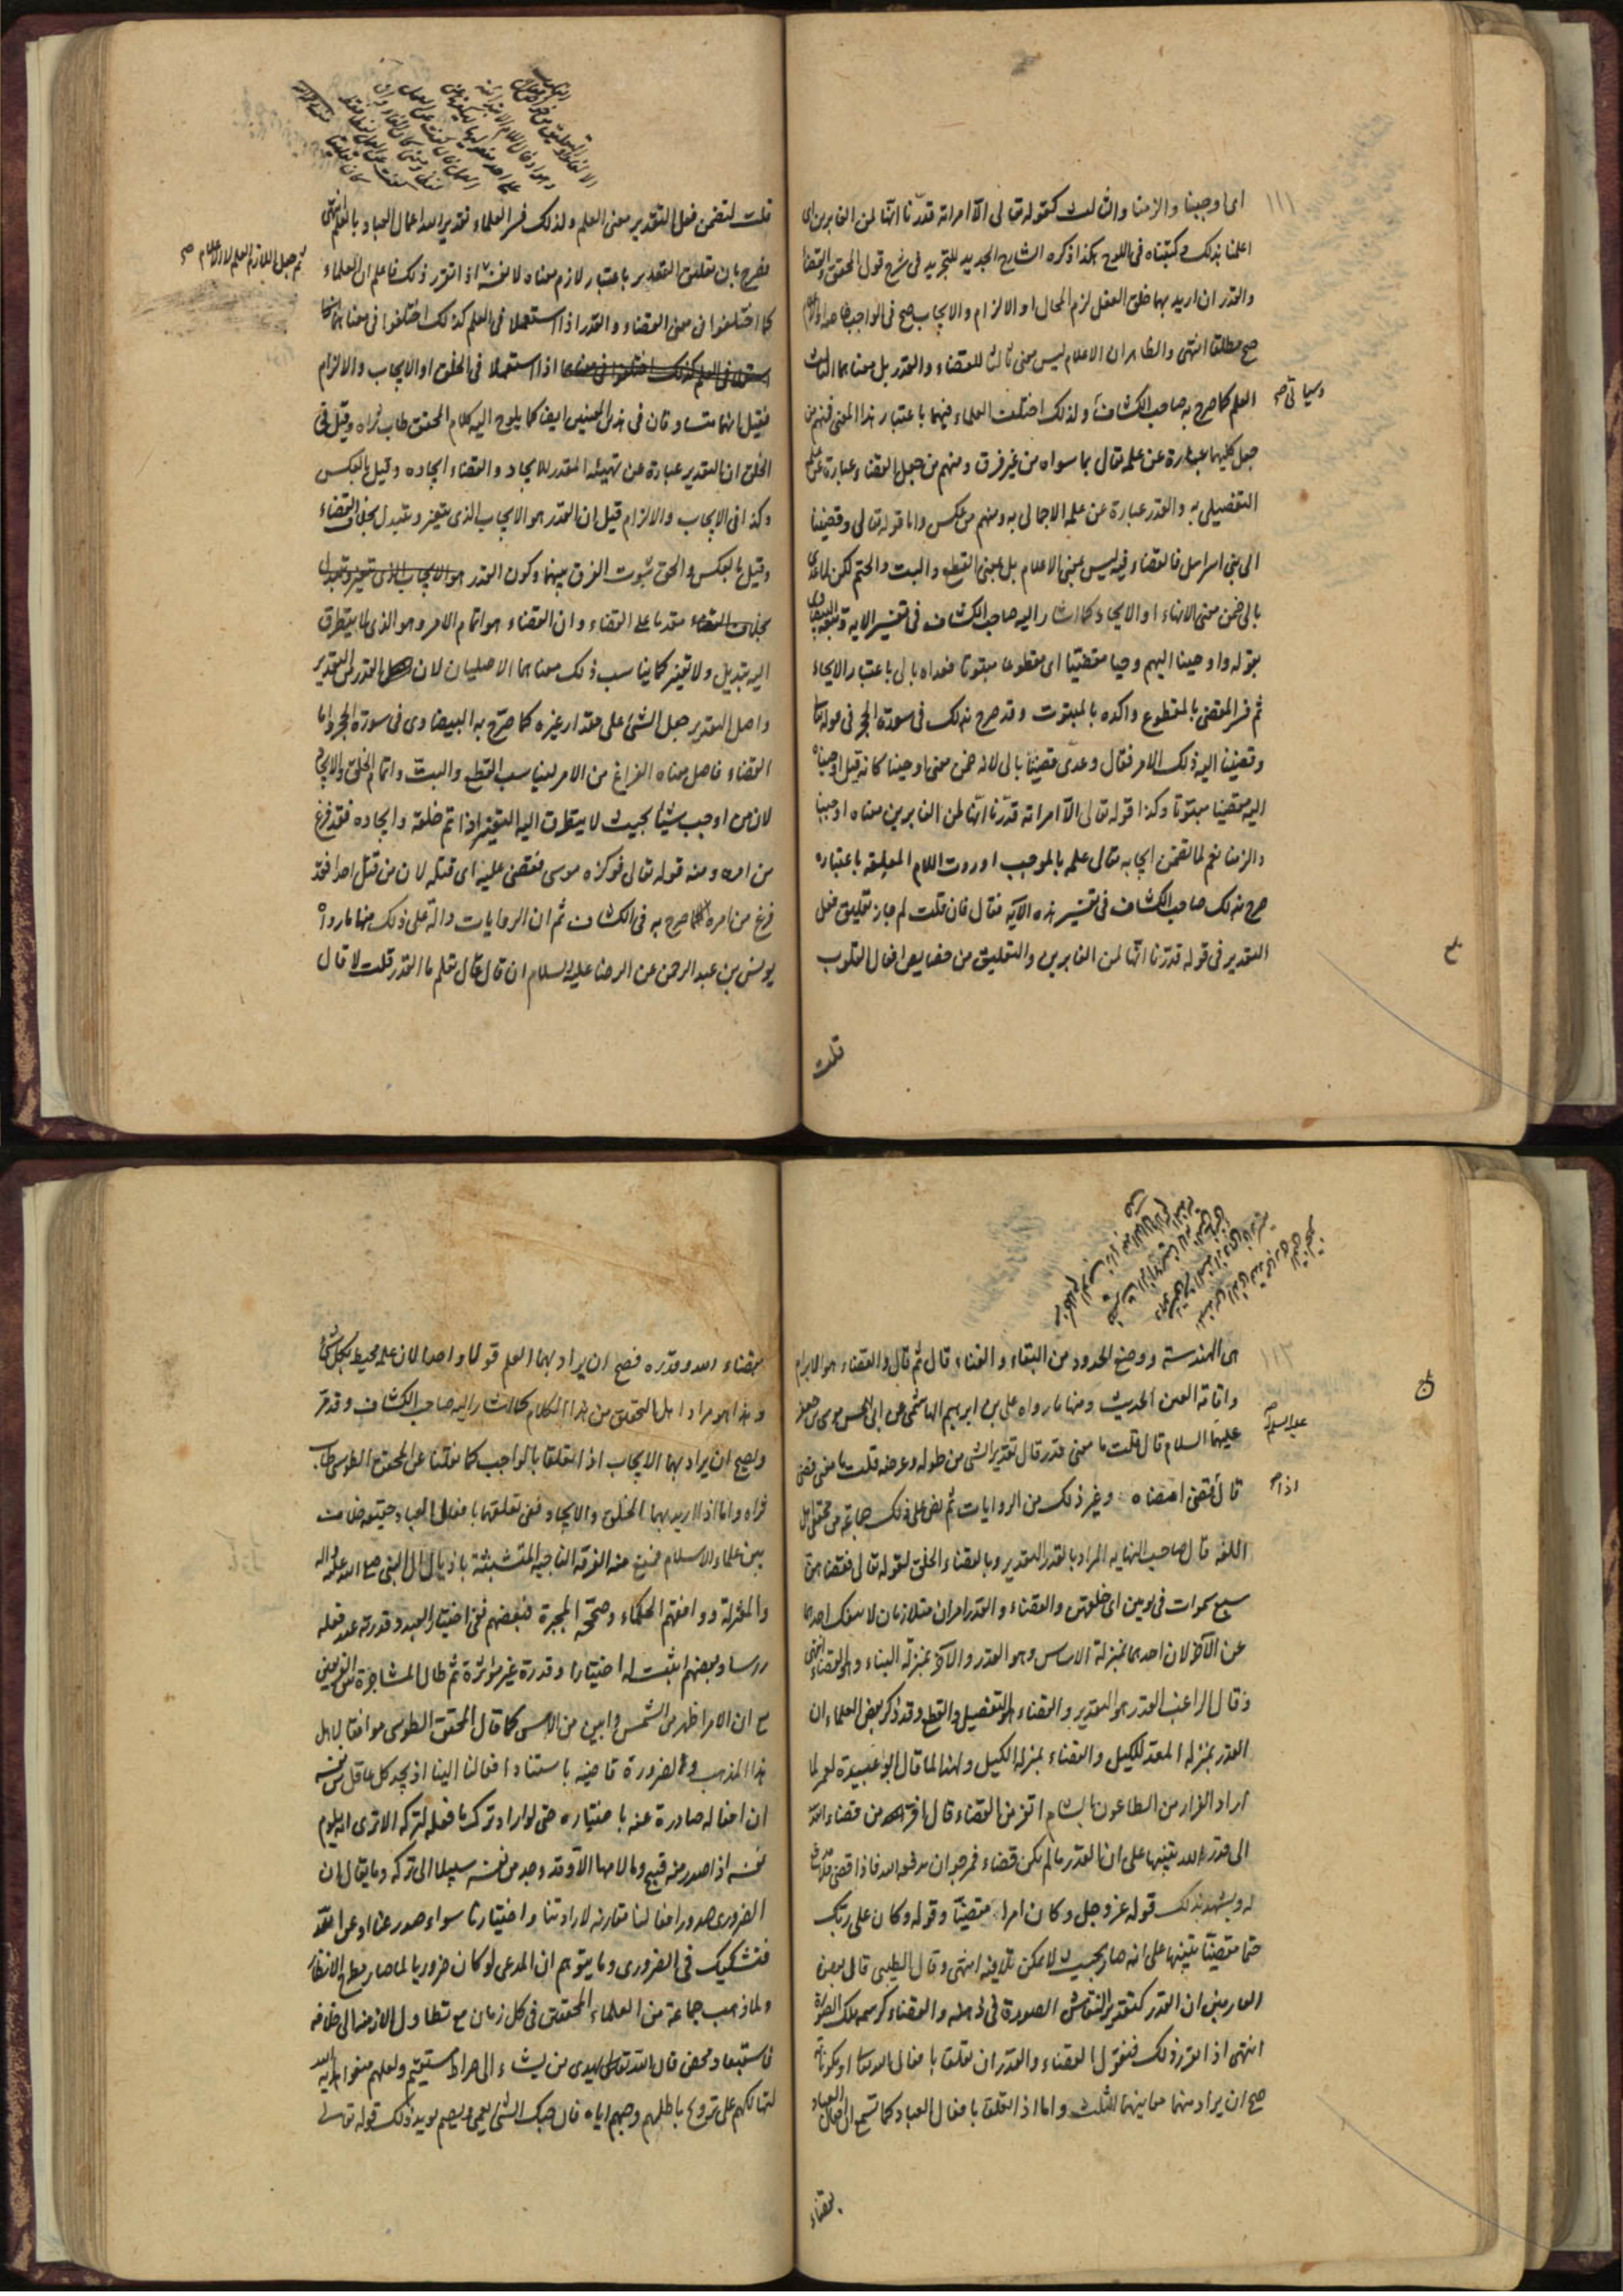 ای اوجبنا والزمنا والثالث کقوله تعالی الا امراته قدرنا انها لمن الغابرین ای
اعلمنا بذلک و کتبناه فی اللوح هکذا ذکره الشارح الجدید للتجرید فی شرح قول المحقق والقضاء
والقدر ان ارید بهما خلق الفعل لزم المحال او الالزام والایجاب صح فی الواجب خاصة او الاعلام
صح مطلقا انتهی والظاهر ان الاعلام لیس معنی ثالثا للقضاء والقدر بل معناهما الثالث
العلم کما صرح به صاحب الکشاف ولذلک اختلف العلماء فیهما باعتبار هذا المعنی فمنهم من
وسیاتی صح
جعل کلیهما عبارة عن علمه تعالی بما سواه من غیر فرق ومنهم من جعل القضاء عبارة عن علمه
التفصیلی به والقدر عبارة عن علمه الاجمالی به ومنهم من عکس واما قوله تعالی وقضینا
الی بنی اسرائیل فالقضاء فیه لیس بمعنی الاعلام بل بمعنی القطع والبت والحتم لکن لما عدی
بالی ضمن معنی الانهاء او الایحاء کما اشار الیه صاحب الکشاف فی تفسیر الایه وتبعه البیضاوی
بقوله واوحینا الیهم وحیا مقضیا ای مقطوعا مبتوتا فعداه بالی باعتبار الایحاء
ثم فسر المقضی بالمقطوع واکده بالمبتوت وقد صرح بذلک فی سورة الحجر فی قوله تعالی
وقضینا الیه ذلک الامر فقال وعدی قضینا بالی لانه ضمن معنی اوحینا کانه قیل اوحیناه
الیه مقضیا مبتوتا وکذا قوله تعالی الا امراته قدرنا انها لمن الغابرین معناه اوجبنا
والزمنا نعم لما تضمن ایجابه تعالی علمه بالموجب اوردت اللام المعلقة باعتباره
صرح بذلک صاحب الکشاف فی تفسیر هذه الآیة فقال فان قلت لم جاز تعلیق فعل
التقدیر فی قوله قدرنا انها لمن الغابرین والتعلیق من خصایص افعال القلوب
قلت
قلت لتضمن فعل التقدیر معنی العلم ولذلک فسر العلماء تقدیر الله اعمال العباد بالعلم انتهی
فصرح بان تعلیق التقدیر باعتبار لازم معناه لا نفسه اذا تقرر ذلک فاعلم ان العلماء
ثم جعل اللازم العلم لا الاعلام صح
کما اختلفوا فی معنی القضاء والقدر اذا استعملا فی العلم کذلک اختلفوا فی معناهما
استعملا فی العلم کذلک اختلفوا فی معناهما اذا استعملا فی الخلق او الایجاب والالزام
فقیل انهما متساوقان فی هذین المعنیین ایضا کما یلوح الیه کلام المحقق طاب ثراه وقیل فی
الخلق ان التقدیر عبارة عن تهیئة المقدر للایجاد والقضاء ایجاده وقیل بالعکس
وکذا فی الایجاب والالزام قیل ان القدر هو الایجاب الذی یتغیر ویتبدل بخلاف القضاء
وقیل بالعکس والحق ثبوت الفرق بینهما وکون القدر هو الایجاب الذی یتغیر ویتبدل
بخلاف القضاء مقدما علی القضاء وان القضاء هو اتمام الامر وهو الذی لا یتطرق
الیه تبدیل ولا تغیر کما یناسب ذلک معناهما الاصلیان لان القدر من التقدیر
واصل التقدیر جعل الشئ علی مقدار غیره کما صرح به البیضاوی فی سورة الحجر واما
القضاء فاصل معناه الفراغ من الامر لیناسب القطع والبت واتمام الخلق والایجاد
لان من اوجب شیئا بحیث لا یتطرق الیه التغییر اذا تم خلقه وایجاده فقد فرغ
من امره ومنه قوله تعالی فوکزه موسی فقضی علیه ای قتله لان من قتل احدا فقد
فرغ من امره کما صرح به فی الکشاف ثم ان الروایات دالة علی ذلک منها ما رواه
یونس بن عبد الرحمن عن الرضا علیه السلام ان قال قال تعلم ما القدر قلت لا قال
هی الهندسة ووضع الحدود من البقاء والفناء قال ثم قال والقضاء هو الابرام
واقامة العین الحدیث ومنها ما رواه علی بن ابراهیم الهاشمی عن ابی الحسن موسی بن جعفر
علیهما السلام قال قلت ما معنی قدر قال تقدیر الشئ من طوله وعرضه قلت ما معنی قضی
قال اذا قضی امضاه وغیر ذلک من الروایات ثم نص علی ذلک جماعة من محققی اهل
اللغة قال صاحب النهایه المراد بالقدر التقدیر وبالقضاء الخلق لقوله تعالی فقضاهن
سبع سموات فی یومین ای خلقهن والقضاء والقدر امران متلازمان لا ینفک احدهما
عن الآخر لان احدهما بمنزلة الاساس وهو القدر والآخر بمنزلة البناء وهو القضاء انتهی
وقال الراغب القدر هو التقدیر والقضاء هو التفصیل والقطع وقد ذکر بعض العلماء ان
القدر بمنزله المعد للکیل والقضاء بمنزله الکیل ولهذا لما قال ابو عبیدة لعمر لما
اراد الفرار من الطاعون بالشام اتفر من القضاء قال افر من قضاء الله
الی قدر الله تنبیها علی ان القدر ما لم یکن قضاء فمرجو ان یدفعه الله فاذا قضی فلا مدفع
له ویشهد بذلک قوله عز وجل وکان امرا مقضیا وقوله وکان علی ربک
حتما مقضیا تنبیها علی انه صار بحیث لا یمکن تلافیه انتهی وقال الطیبی قال بعض
العارفین ان القدر کتقدیر النقاش الصورة فی ذهنه والقضاء کرسمه تلک الصورة
انتهی اذا تقرر ذلک فنقول القضاء والقدر ان تعلقا بافعال الله تعالی
صح ان یراد بهما معانیهما الثلث واما اذا تعلقا بافعال العباد کما تسمع ان افعال العباد
بقضاء
بقضاء الله وقدره فصح ان یراد بهما العلم قولا واحدا لان علمه محیط بکل شئ
وهذا هو مراد اهل التحقیق من هذا الکلام کما اشار الیه صاحب الکشاف وقد مر
ویصح ان یراد بهما الایجاب اذا تعلقا بالواجب کما نقلنا عن المحقق الطوسی طاب
ثراه واما اذا ارید بهما الخلق والایجاد ففی تعلقهما بافعال العباد حقیقه خلاف
بین علماء الاسلام فمنع عنه الفرقة الناجیة المتشبثة باذیال آل النبی صلی الله علیه واله
والمعتزلة ووافقهم الحکماء وصححه المجبرة فبعضهم نفی اختیار العبد وقدرته عند فعله
راسا وبعضهم اثبت له اختیارا وقدرة غیر مؤثرة ثم طال المشاجرة بین الفریقین
مع ان الامر اظهر من الشمس وابین من الامس کما قال المحقق الطوسی موافقا لاهل
هذا المذهب والضرورة قاضیه باستناد افعالنا الینا اذ یجد کل عاقل من نفسه
ان افعاله صادرة عنه باختیاره حتی لو اراد ترک ما فعله لترکه الا تری انه یلوم
نفسه اذا صدر منه قبیح وما لامها الا وقد وجد من نفسه سبیلا الی ترکه وما یقال ان
الضروری صدور افعالنا مقارنه لارادتنا واختیارنا سواء صدر عنا او عن الله
فتشکیک فی الضروری وما یتوهم ان المدعی لو کان ضروریا لما صار مطرح الانظار
ولما ذهب جماعة من العلماء المحققین فی کل زمان مع تطاول الازمنه الی خلافه
فاستبعاد محض قال الله تعالی یهدی من یشاء الی صراط مستقیم ولعلهم منعوا هدایه الله
لتهالکهم علی ترویج باطلهم وحبهم ایاه فان حبک الشئ یعمی ویصم یوید ذلک قوله تعالی